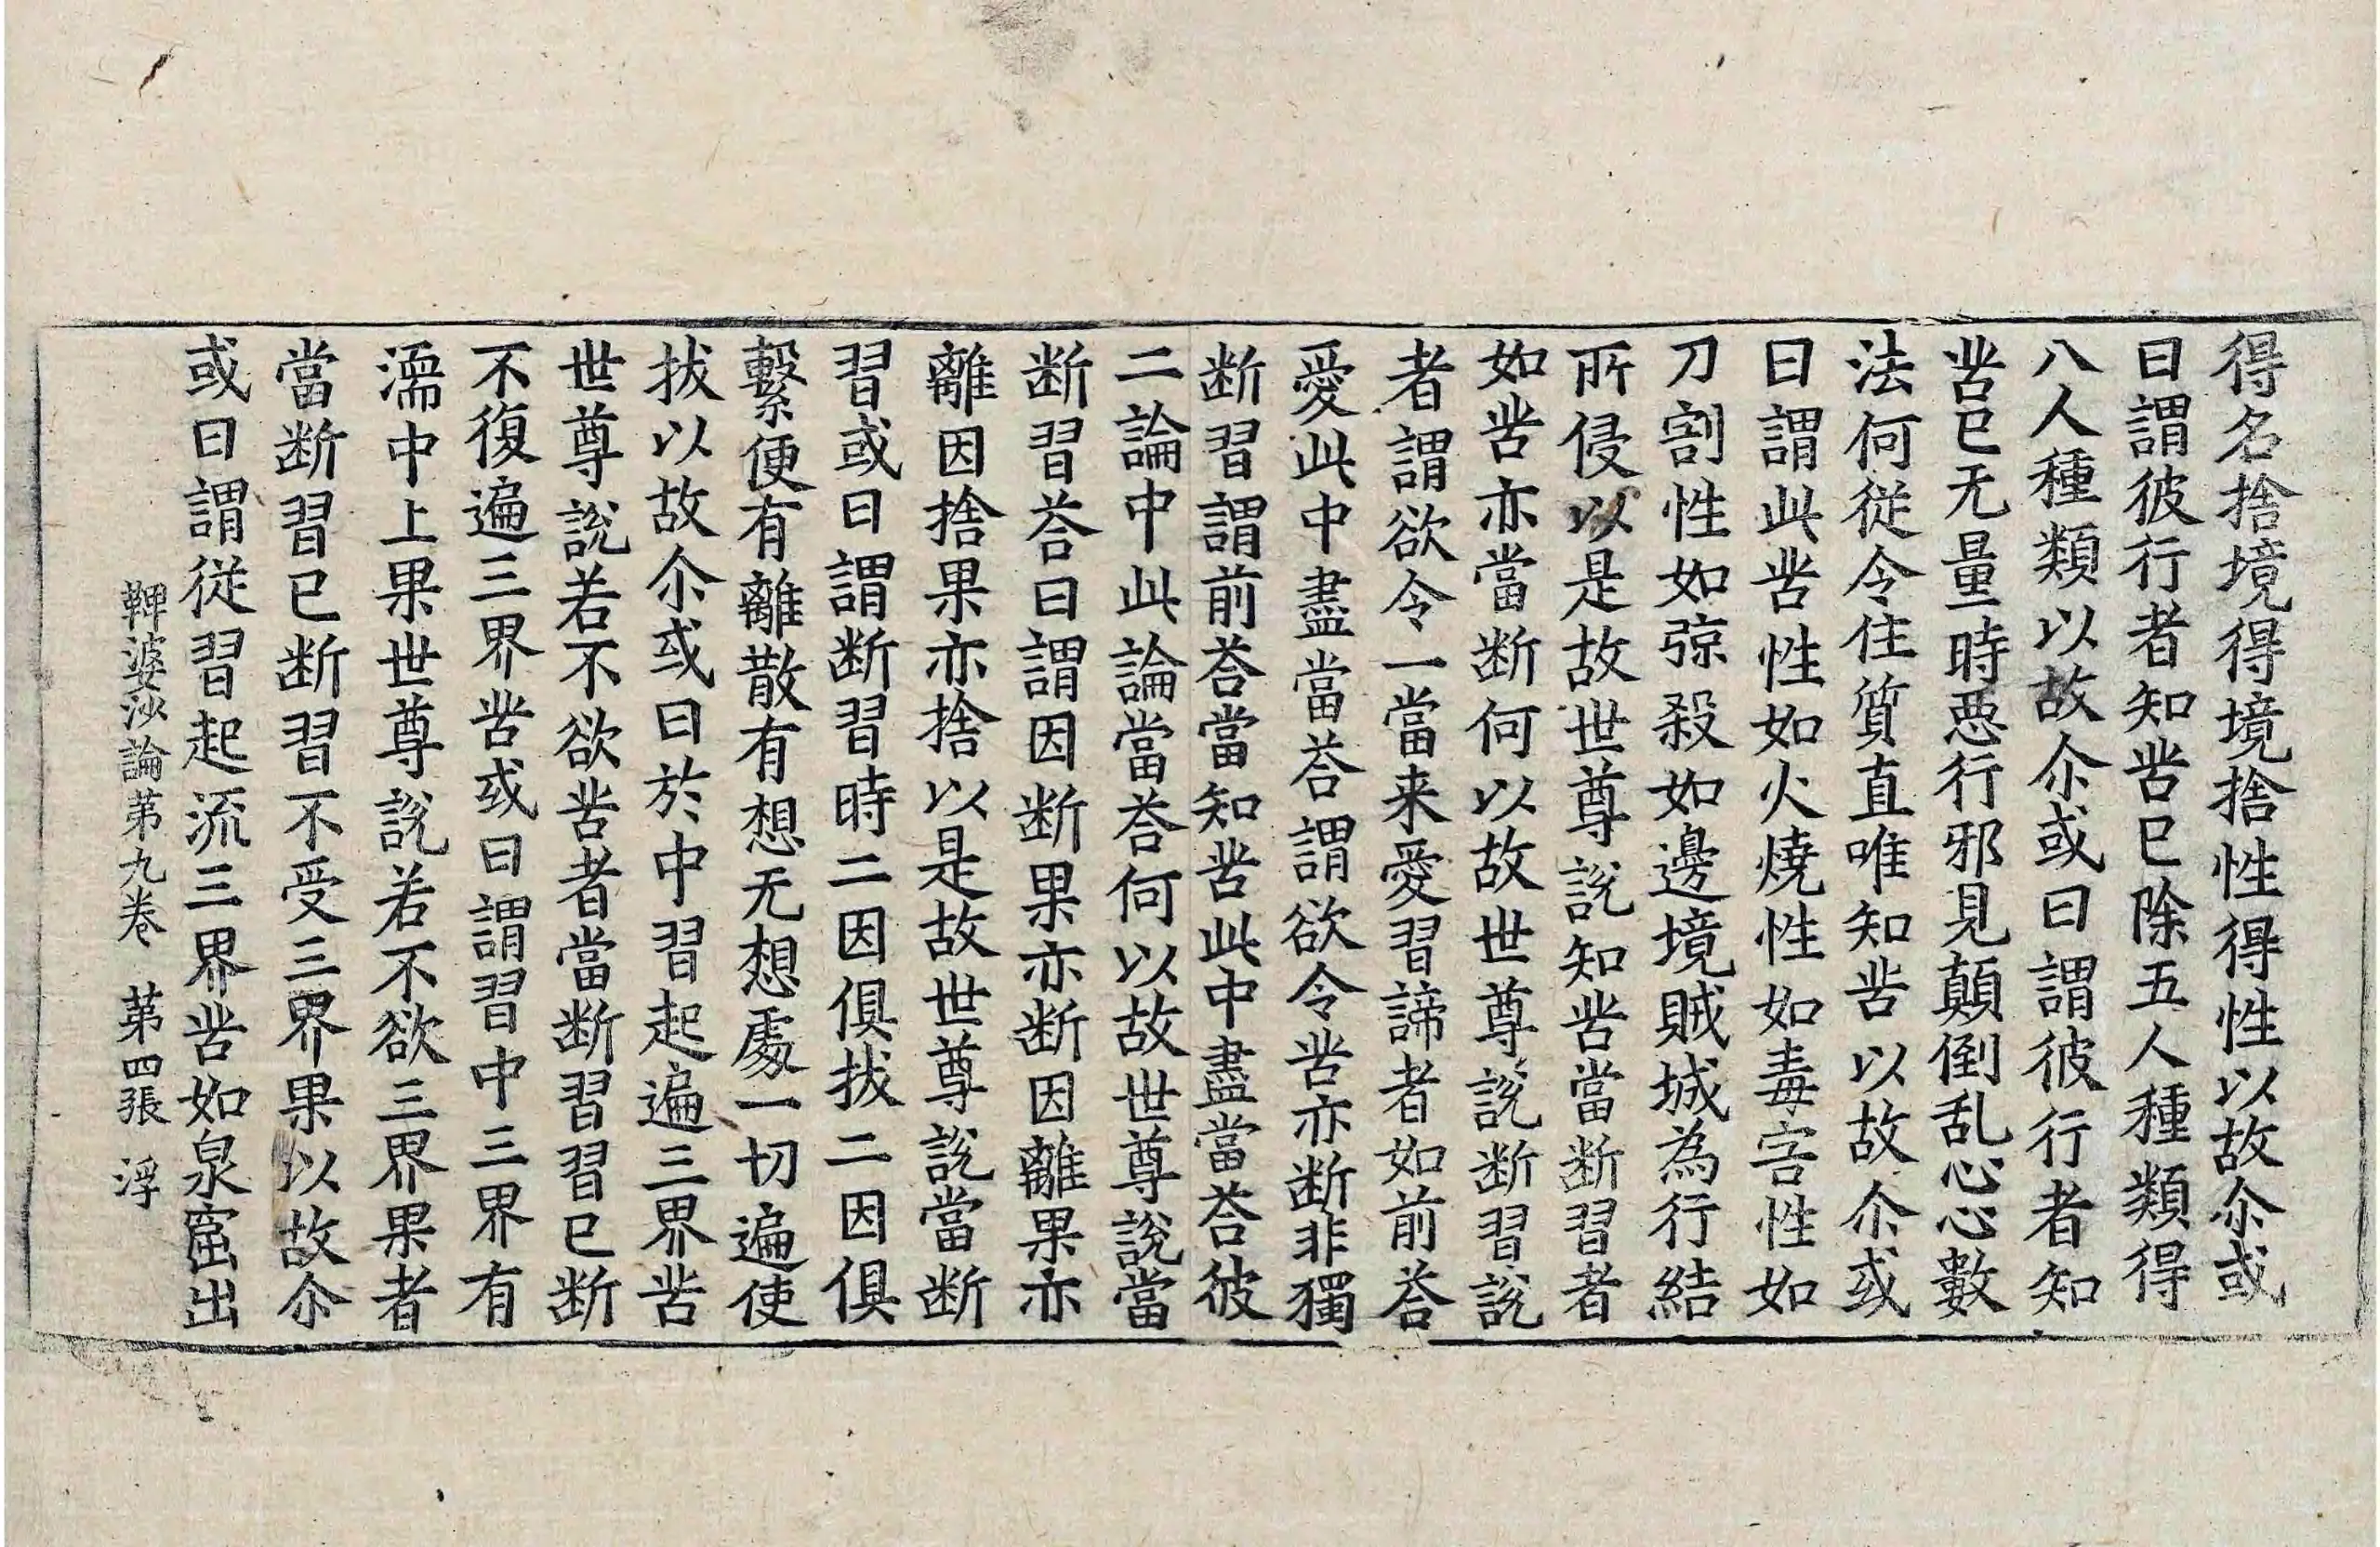 得名捨境得境捨性得性以故尒或
曰謂彼行者知苦已除五人種類得
八人種類以故尒或曰謂彼行者知
苦已无量時惡行邪見顛倒乱心心數
法何從令住質直唯知苦以故尒或
曰謂此苦性如火燒性如毒害性如
刀割性如弶殺如邊境賊城為行結
所侵以是故世尊說知苦當断習者
如苦亦當断何以故世尊說断習說
者謂欲令一當来愛習諦者如前荅
愛此中盡當荅謂欲令苦亦断非獨
断習謂前荅當知苦此中盡當荅彼
二論中此論當荅何以故世尊說當
断習荅曰謂因断果亦断因離果亦
離因捨果亦捨以是故世尊說當断
習或曰謂断習時二因俱拔二因俱
繫便有離散有想无想處一切遍使
拔以故尒或曰於中習起遍三界苦
世尊說若不欲苦者當断習習已断
不復遍三界苦或曰謂習中三界有
濡中上果世尊說若不欲三界果者
當断習已断習不受三界果以故尒
或曰謂從習起流三界苦如泉窟出
鞞婆沙論第九卷 第四張 浮